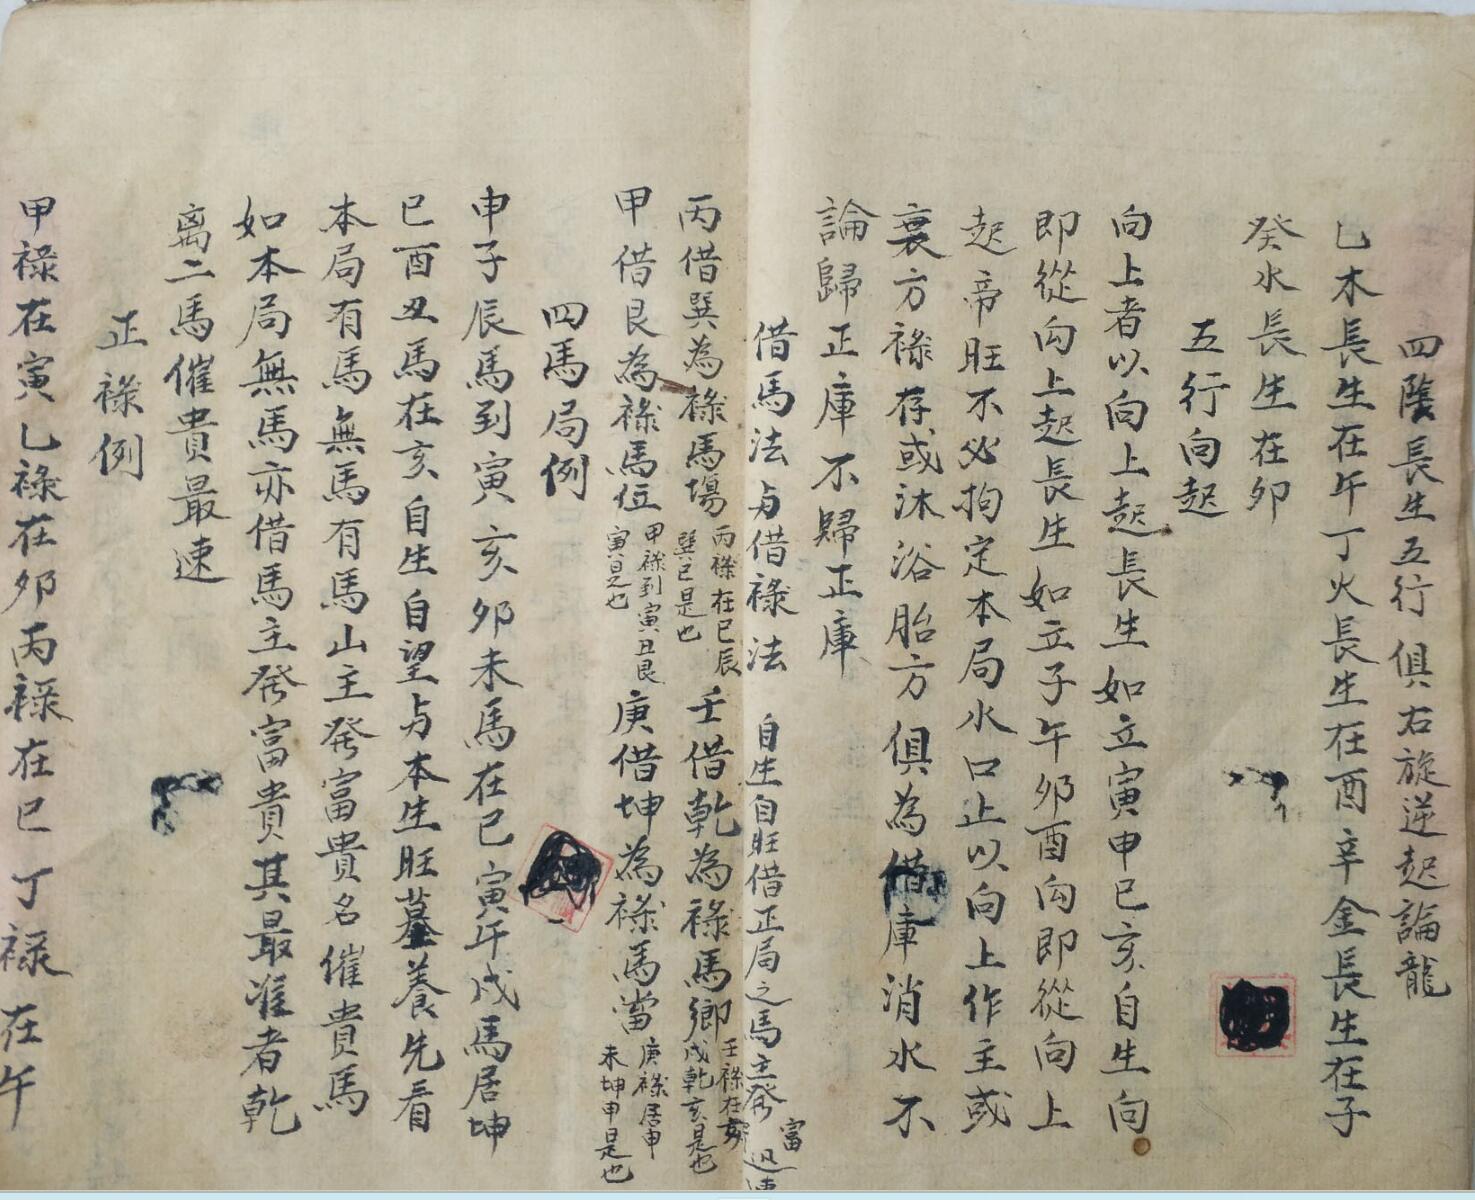 四陰長生五行俱右旋逆起論龍
乙木長生在午丁火長生在酉辛金長生在子
癸水長生在卯
五行向起
向上者以向上起長生如立寅申巳亥自生向
即從向上起長生如立子午卯酉向即從向上
起帝旺不必拘定本局水口止以向上作主或
衰方祿存或沐浴胎方俱為借庫消水不
論歸正庫不歸正庫
借馬法与借祿法 自生自旺借正局之馬主發富迅速
丙借巽為祿馬塲 丙祿在巳辰巽巳是也 壬借乾為祿馬鄉 壬祿在亥戌乾亥是也
甲借艮為祿馬位 甲祿到寅丑艮寅是也 庚借坤為祿馬當 庚祿居申未坤申是也
四馬局例
申子辰馬到寅亥卯未馬在巳寅午戌馬居坤
巳酉丑馬在亥自生自望与本生旺墓養先看
本局有馬無馬有馬山主發富貴名催貴馬
如本局無馬亦借馬主發富貴其最准者乾
离二馬催貴最速
正祿例
甲祿在寅乙祿在卯丙祿在巳丁祿在午